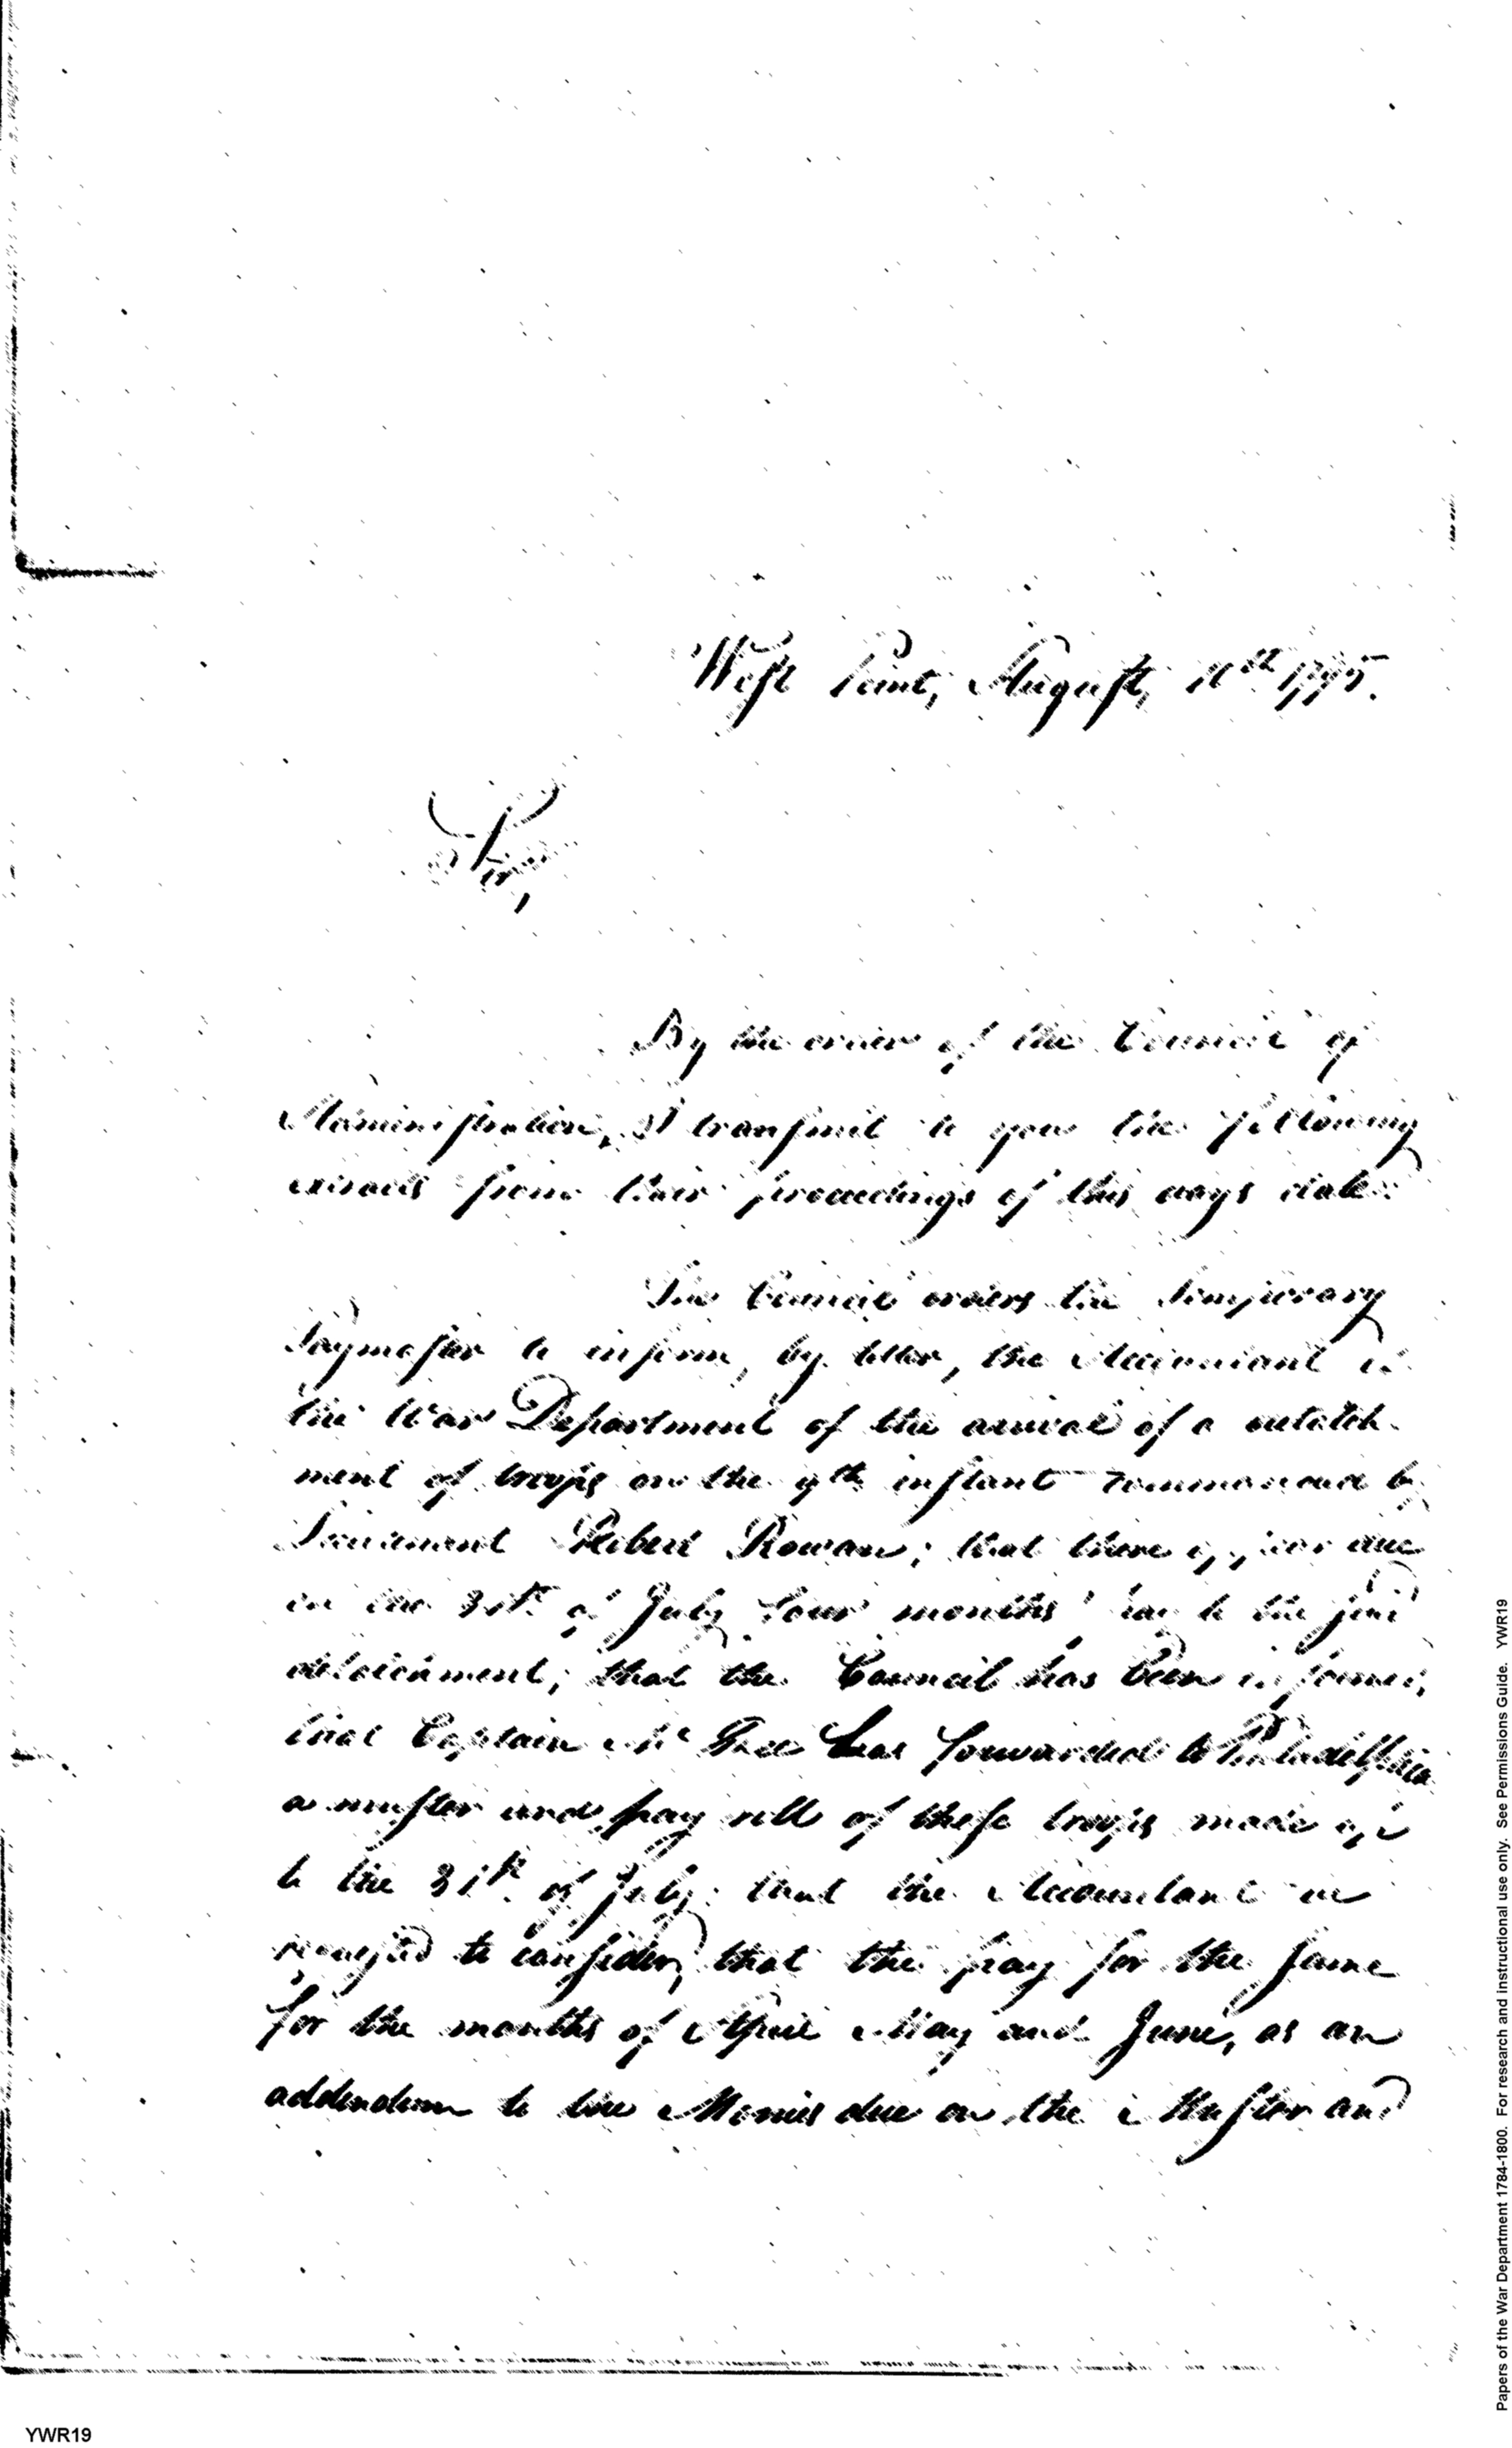 West Point, August, 1795.
Sir,
By the order of the Council of
Administration, I transmit to you the following
extracts from their proceedings of this days date:
The Council orders the temporary
Paymaster to inform, by letter, the Accountant of
the War Department of the arrival of a detatch-
ment of troops on the 9th instant commanded by
Lieutenant Robert Rowan; that there appear due
on the 31st of July four months' pay to the said
detachment; that the Council has been informed,
that Captain has forwarded to Philadelphia
a muster and pay roll of these troops made up
to the 31st of July; that the Accountant
requested to consider, that the pay for the same
for the months of April May and June, as an
addendum to the Monies due on the Muster and
YWR19
Papers of the War Department 1784-1800. For research and instructional use only. See Permissions Guide. YWR19